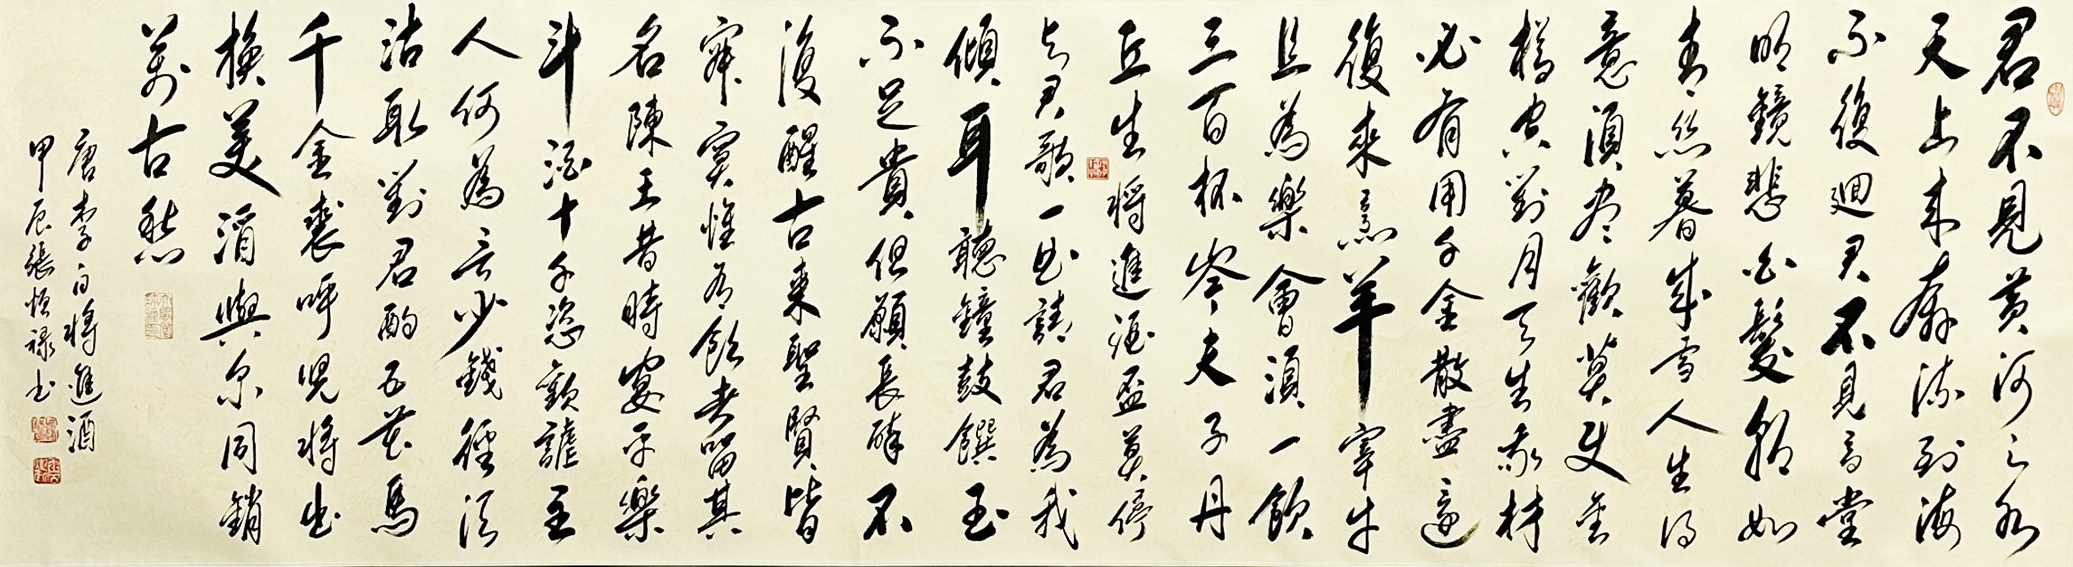 君不見黃河之水
天上来奔流到海
不復迴君不見高堂
明鏡悲白髮朝如
青絲暮成雪人生得
意須盡歡莫使金
樽空對月天生我材
必有用千金散盡還
復來烹羊宰牛
且為樂會須一飲
三百杯岑夫子丹
丘生將進酒盃莫停
与君歌一曲請君為我
傾耳聽鐘鼓饌玉
不足貴但願長醉不
復醒古來聖賢皆
寂寞惟有飲者留其
名陳王昔時宴平樂
斗酒十千恣歡謔主
人何為言少錢徑須
沽取對君酌五花馬
千金裘呼兒將出
換美酒與尔同銷
萬古愁
唐李白將進酒
甲辰張恒祿書